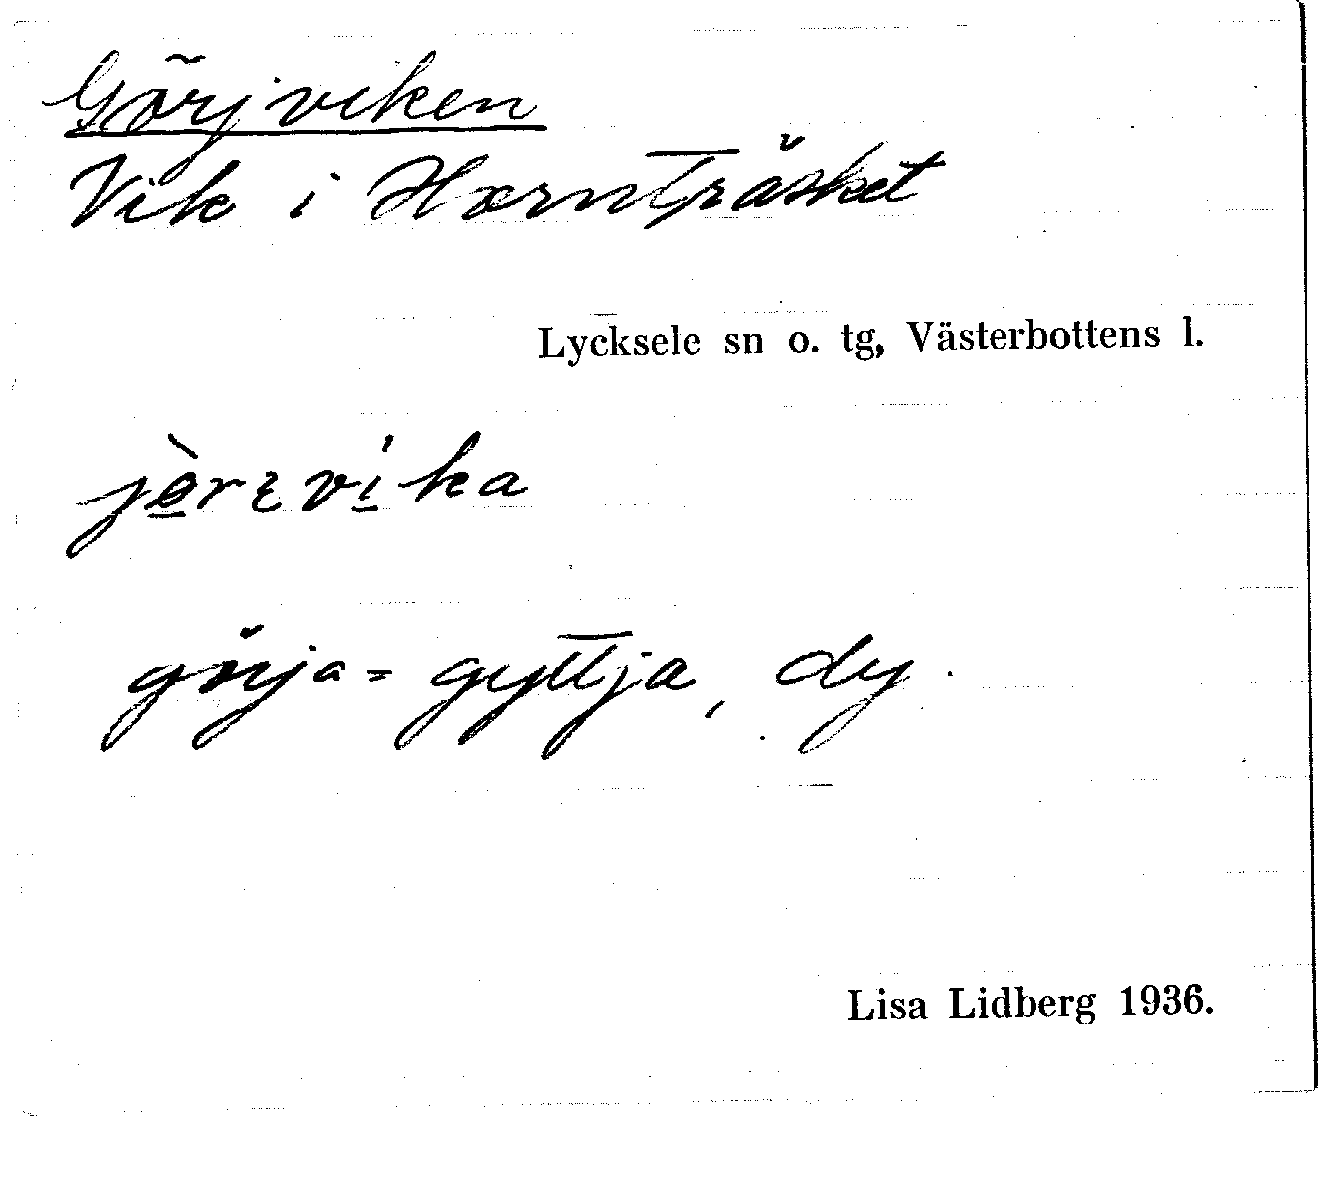 Görjviken
Vik i Hornträsket
Lycksele sn o. tg, Västerbottens l.
jö̀rɛvíka
görja = gyttja, dy.
Lisa Lidberg 1936.